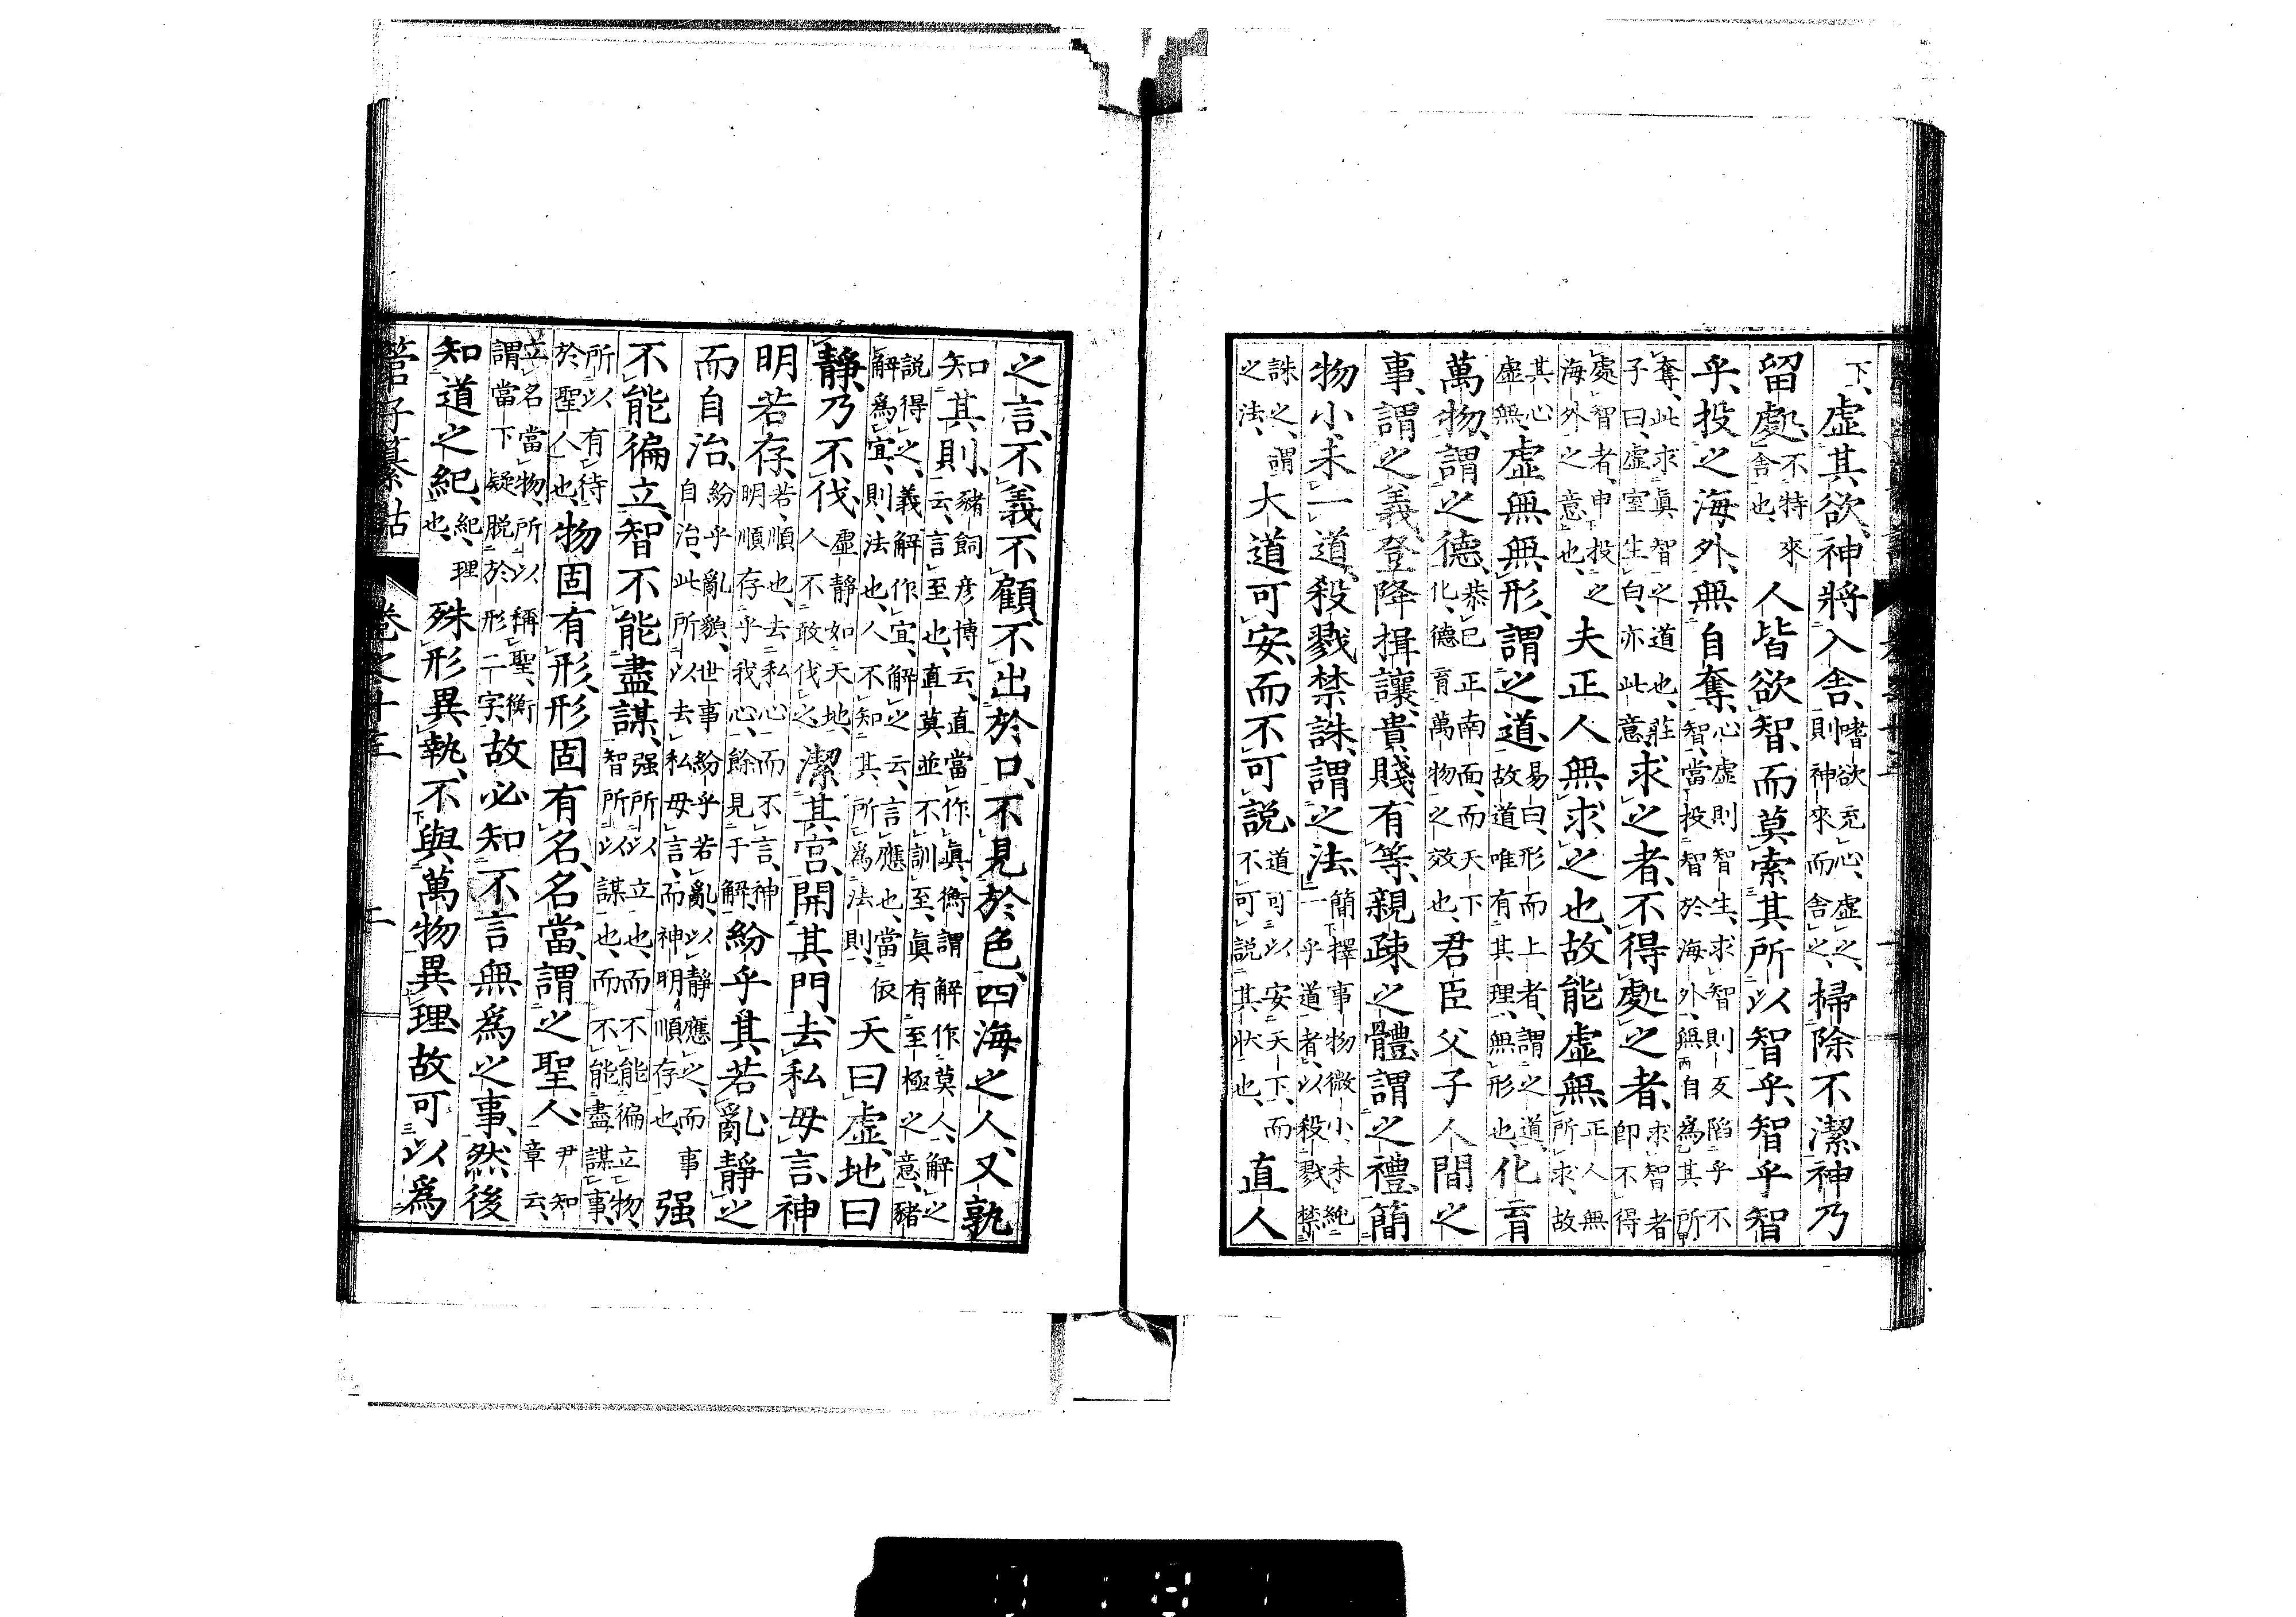 下、虚其欲、神將入舍、嗜欲充心、虚之、則神來而舍之、掃除不潔、神乃
留處、不特來舍也、人皆欲智、而莫索其所以智乎、智乎智
乎、投之海外、無自奪、心虚則智生、求智則反陷乎不智、當投智於海外、無自爲其所
奪、此求眞智之道也、莊子曰、虚室生白、亦此意、求之者、不得處之者、求智者即不得
處智者、申投之海外之意也、夫正人無求之也、故能虚無、正人無所求、故
其心虚無、虚無無形、謂之道、易曰、形而上者、謂之道、故道唯有其理、無形也、化育
萬物、謂之德、恭己正南面、而天下化、德育萬物之效也、君臣父子人間之
事、謂之義、登降揖讓、貴賤有等、親疎之體、謂之禮、簡
物小未一道、殺戮禁誅、謂之法、簡擇事物微小、未純一乎道者、以殺戮禁
誅之、謂之法、大道可安、而不可説、道可以安天下、而不可説其状也、直人
之言、不義不顧、不出於口、不見於色、四海之人、又孰
知其則、豬飼彦博云、直當作眞、衡謂解作莫人、解之云、言至也、直莫並不訓至、眞有至極之意、豬
説得之、義解作宜、解之云、言應也、當依解爲宜、則法也、人不知其所爲法則、天曰虚、地曰
静、乃不伐、虚静如天地、人不敢伐之、潔其宮、開其門、去私毋言、神
明若存、若、順也、去私心而不言、神明順存乎我心、餘見于解、紛乎其若亂、静之
而自治、紛乎亂貌、世事紛乎若亂、以静應之、而事自治、此所以去私毋言、而神明順存也、强
不能徧立、智不能盡謀、强所以立也、而不能徧立物、智所以謀也、而不能盡謀事、
所以有待於聖人也、物固有形、形固有名、名當、謂之聖人、尹知章云、
立名當物、所以稱聖、衡謂當下疑脱於形二字、故必知不言無爲之事、然後
知道之紀、紀、理也、殊形異執、不與萬物異理、故可以爲
管子纂詁 卷之十三 二